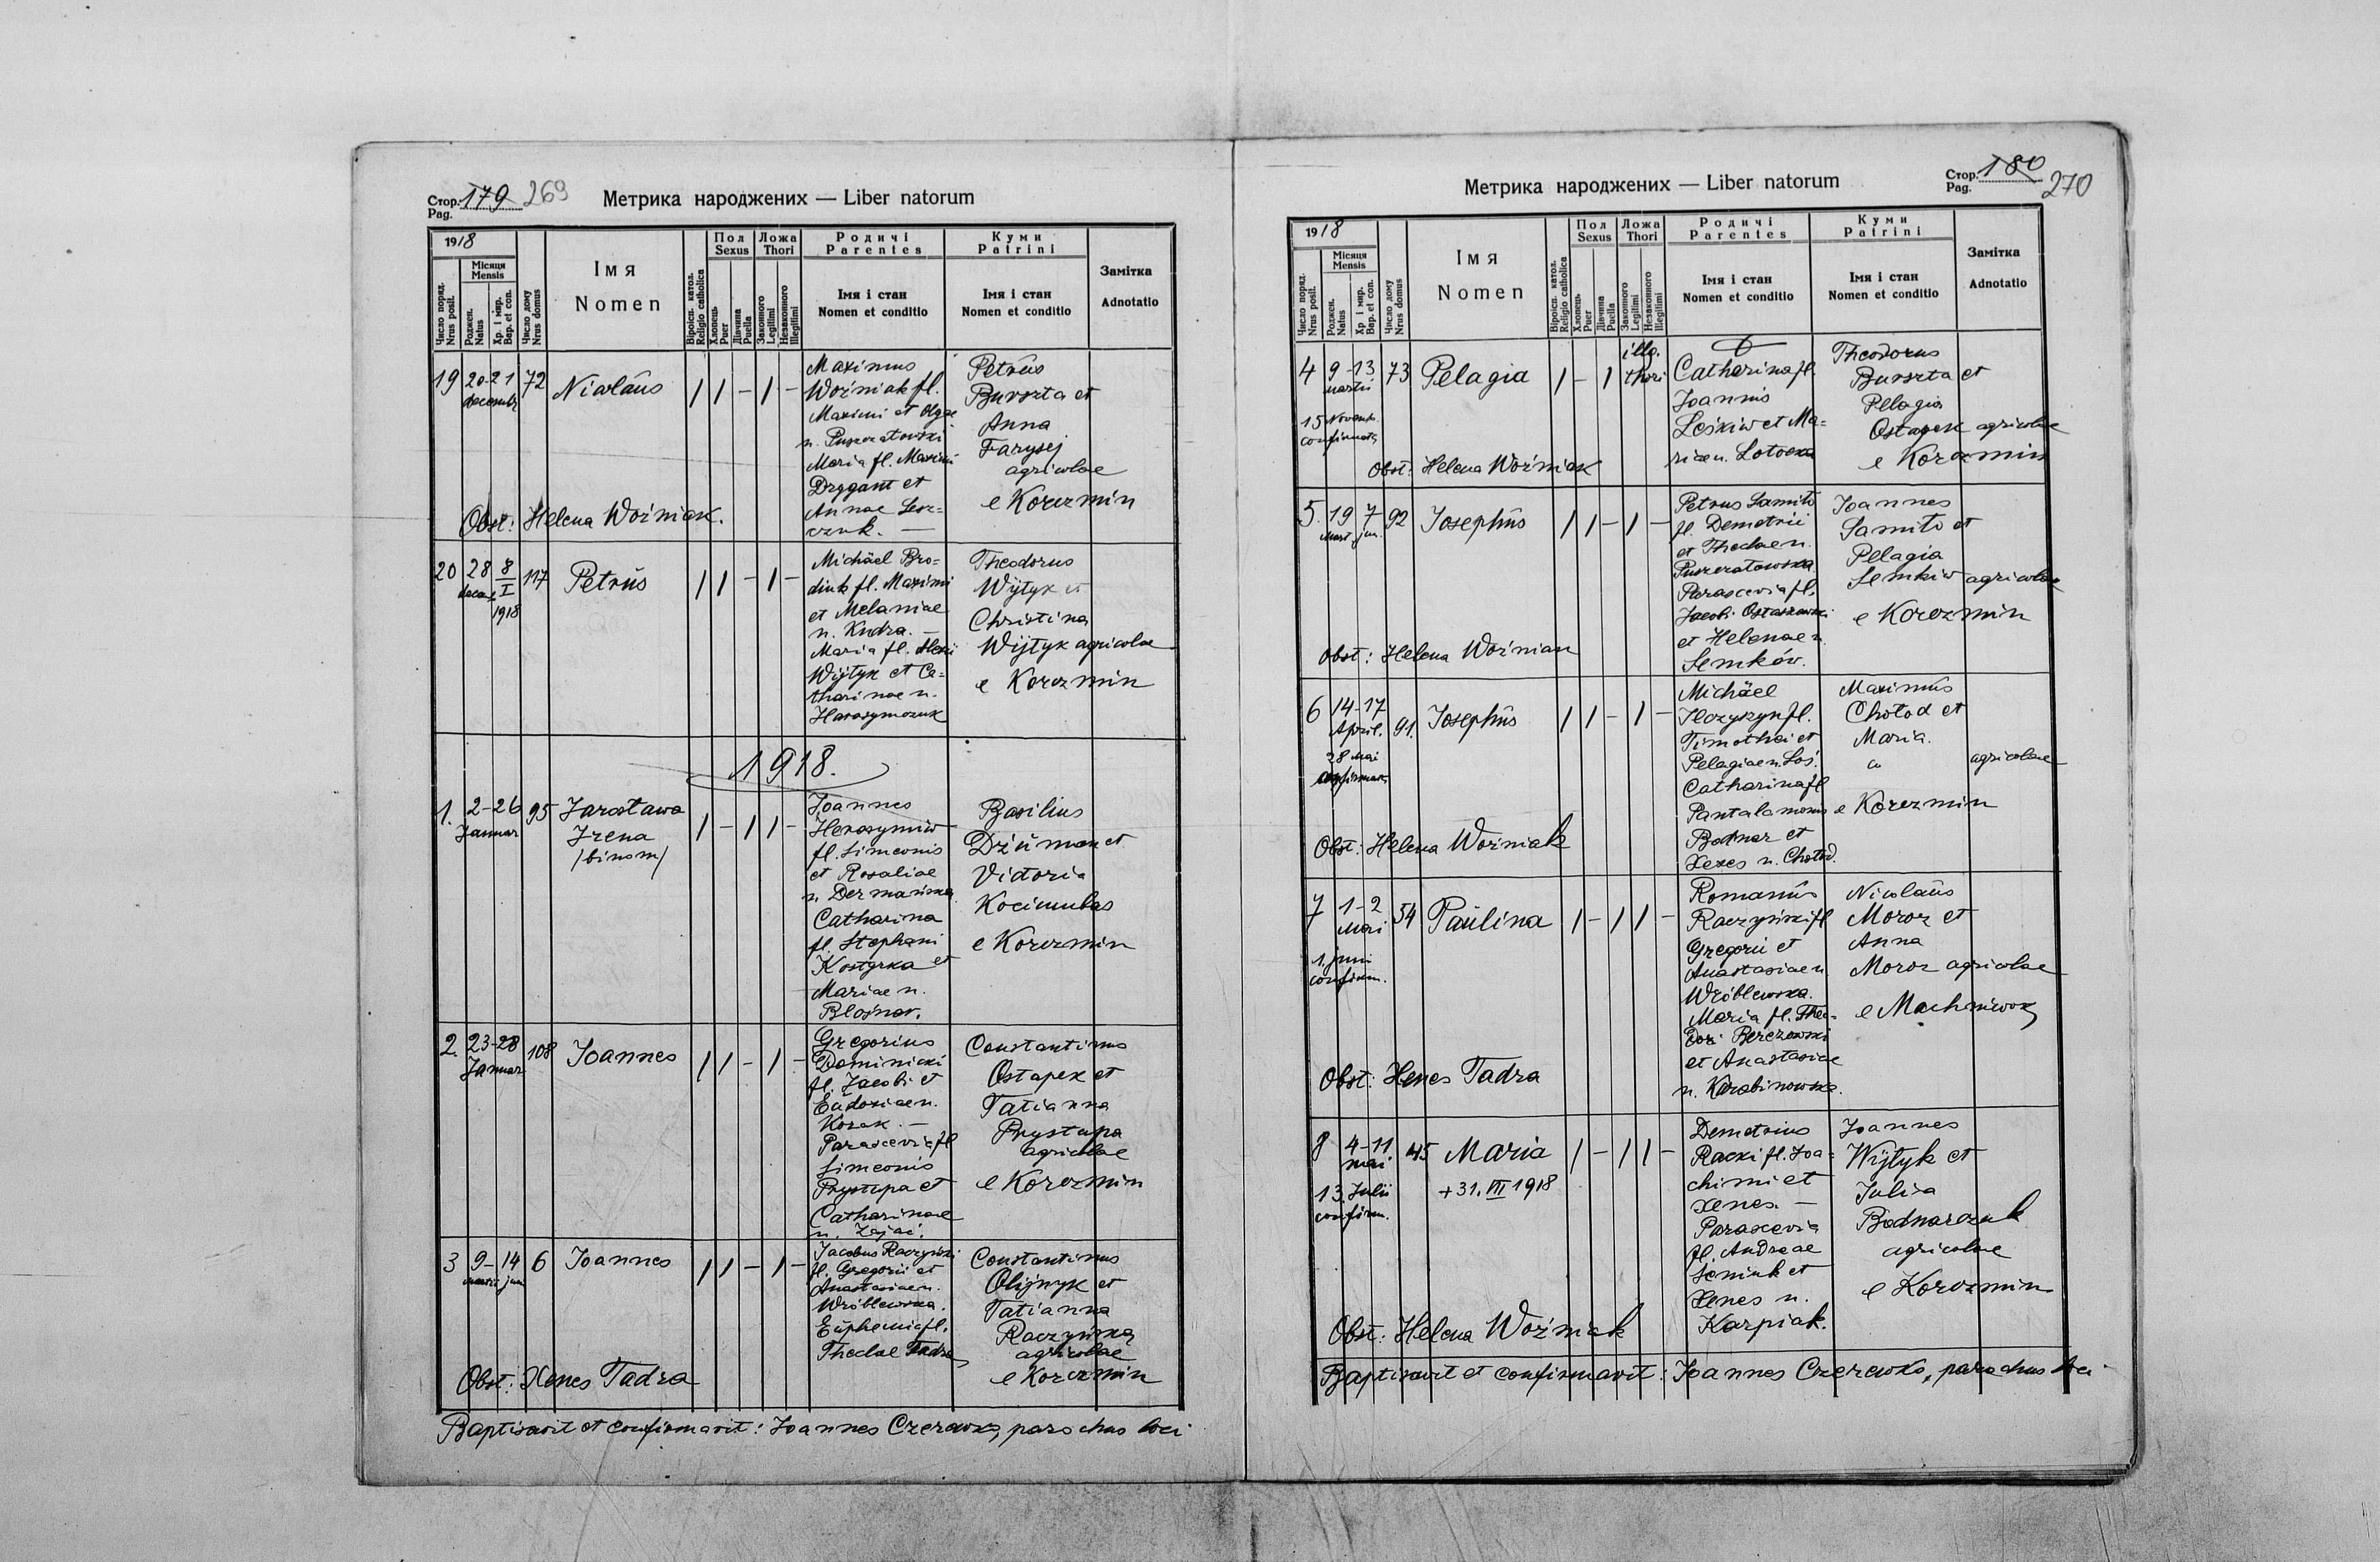 Стор. Pag. 179 269
Метрика народжених — Liber natorum
1918
Число поряд. Nrus posit.
Місяця Mensis
Роджен. Natus
Хр. і мир. Bap. et con.
Число дому Nrus domus
Імя Nomen
Віроісп. катол. Religio catholica
Пол Sexus
Хлопець Puer
Дівчина Puella
Ложа Thori
Законного Legitimi
Незаконного Illegitimi
Родичі Parentes
Імя і стан Nomen et conditio
Куми Patrini
Імя і стан Nomen et conditio
Замітка Adnotatio
19 20-21 decembr 72 Nicolaus / / – / –
Maximus
Woźniak fl.
Maximi et Olgae
n. Puszczatowski
Maria fl. Maximi
Drygant et
Annae Lesz=
czuk. —
Petrus
Burszta et
Anna
Farysej
agricolae
e Korczmin
Obst: Helena Woźniak.
20 28 decem 8 I 1918 117 Petrus / / – / –
Michael Bro=
diuk fl. Maximi
et Melaniae
n. Kudra. —
Maria fl. Alexii
Wijtyk et Ca=
tharinae n.
Harasymczuk
Theodorus
Wijtyk et
Christina
Wijtyk agricolae
e Korczmin
1918.
1. 2-26 Januar 95 Jarosława
Irena
/binom/ / – / / –
Joannes
Herasymiw
fl. Simeonis
et Rosaliae
n. Dermańska
Catharina
fl. Stephani
Kostyrka et
Mariae n.
Blajnar.
Basilius
Dziuman et
Victoria
Kocimubas
e Korczmin
2. 23-28 Januar 108 Joannes / / – / –
Gregorius
Dominicki
fl. Jacobi et
Eudoxiae n.
Kozak. —
Parascevia fl
Simeonis
Prystupa et
Catharinae
n. Zajac.
Constantinus
Ostapek et
Tatianna
Prystupa
agricolae
e Korczmin
3 9-14 martii jun 6 Joannes / / – / –
Jacobus Raczyński
fl. Gregorii et
Anastasiae n.
Wróblewska.
Euphemia fl.
Theclae Tadra
Constantinus
Olijnyk et
Tatianna
Raczyńska
agricolae
e Korczmin
Obst: Xenes Tadra
Baptisavit et confirmavit: Joannes Czerewko, parochus loci
Метрика народжених — Liber natorum
Стор. Pag. 180 270
1918
Число поряд. Nrus posit.
Місяця Mensis
Роджен. Natus
Хр. і мир. Bap. et con.
Число дому Nrus domus
Імя Nomen
Віроісп. катол. Religio catholica
Пол Sexus
Хлопець Puer
Дівчина Puella
Ложа Thori
Законного Legitimi
Незаконного Illegitimi
Родичі Parentes
Імя і стан Nomen et conditio
Куми Patrini
Імя і стан Nomen et conditio
Замітка Adnotatio
4 9-13 martii 73 Pelagia / – / illg. thori
15 Novemb.
confirmata
Catharina fl.
Joannis
Leśkiw et Ma=
riae n. Łotocka
Theodorus
Burszta et
Pelagia
Ostapek agricolae
e Korczmin
Obst: Helena Woźniak
5. 19 7 Mart jun. 92 Josephus / / – / –
Petrus Samiło
fl. Demetrii
et Theclae n.
Puszczatowska
Parascevia fl.
Jacobi Ostaszewski
et Helenae n.
Semków.
Joannes
Samiło et
Pelagia
Semkiw agricolae
e Korczmin
Obst: Helena Woźniak
6 14-17 April. 91. Josephus / / – / –
28 Mai
confirmatus
Michael
Ilczyszyn fl.
Timothei et
Pelagiae n. Łoś.
Catharina fl
Pantalamonis
Bodnar et
Xenes n. Chołod.
Maximus
Chołod et
Maria
agricolae
e Korczmin
Obst: Helena Woźniak
7 1-2 Mai 54 Paulina / – / / –
1. juni
confirm.
Romanus
Raczyński fl
Gregorii et
Anastasiae n.
Wróblewska.
Maria fl. Theo=
dori Berezowski
et Anastasiae
n. Karabinowska.
Nicolaus
Moroz et
Anna
Moroz agricolae
e Machniwok
Obst: Xenes Tadra
8 4-11. mai 45 Maria / – / / –
+31. VII 1918
13. Julii
confirm.
Demetrius
Racki fl. Joa=
chimi et
Xenes. —
Parascevia
fl. Andreae
Seniuk et
Xenes n.
Karpiak.
Joannes
Wijtyk et
Julia
Bodnarczuk
agricolae
e Korczmin
Obst: Helena Woźniak
Baptisavit et confirmavit: Joannes Czerewko, parochus loci